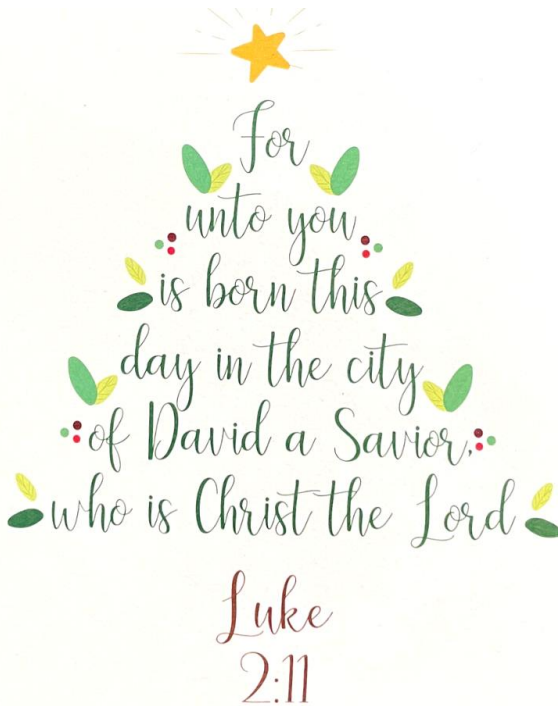 For
unto you
is born this
day in the city
of David a Savior,
who is Christ the Lord
Luke
2:11